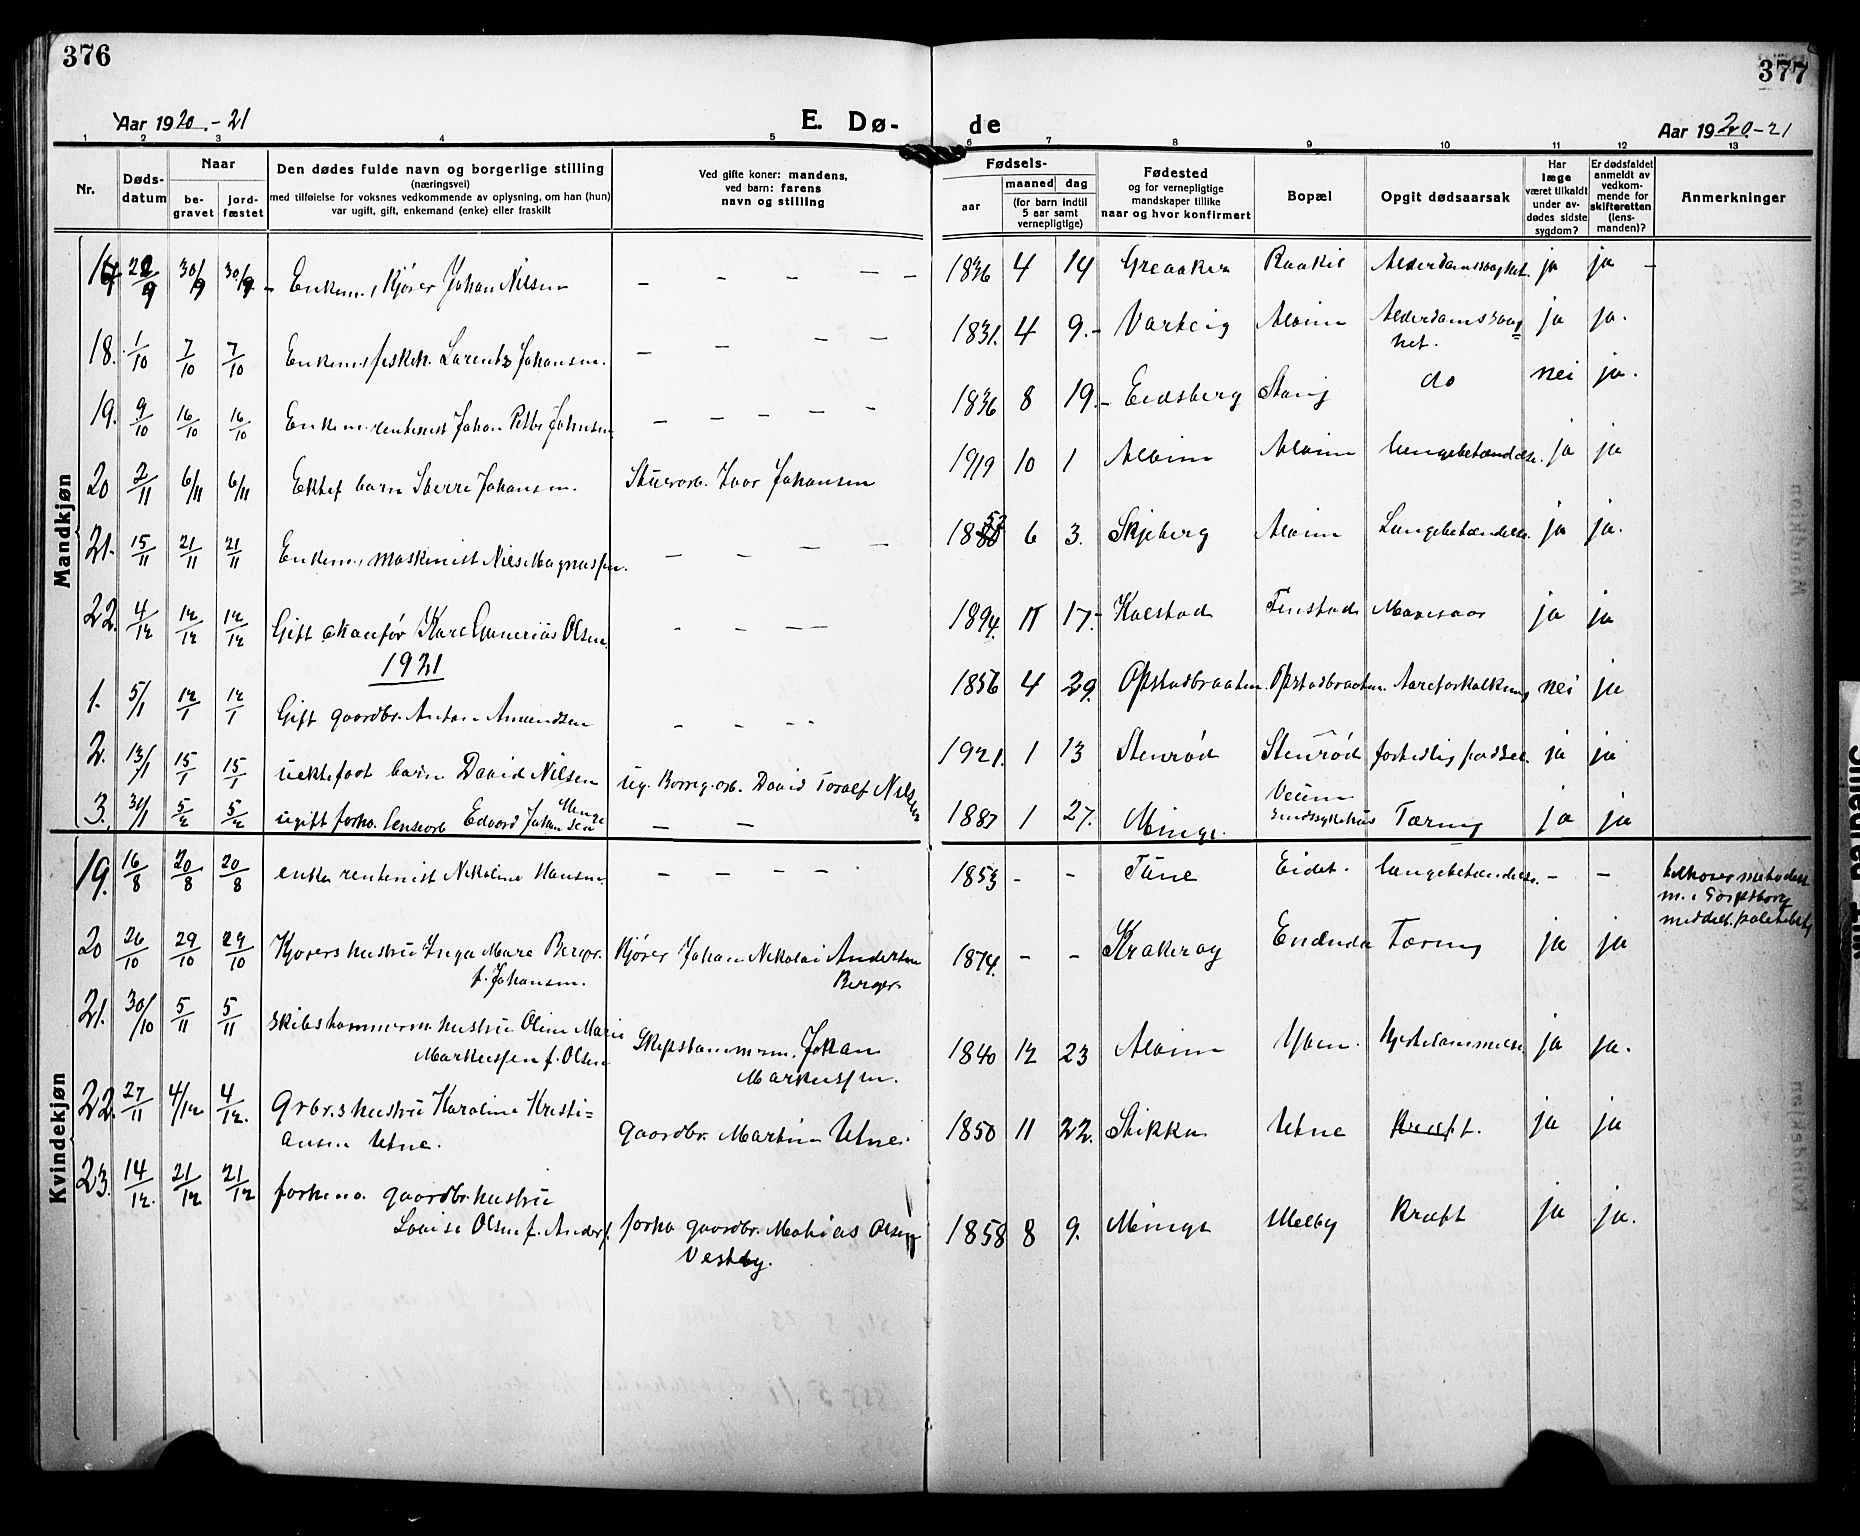 376
377
Aar 1920.-21
E. Dø-
de
Aar 1920.-21
1 2 3 4 5 6 7 8 9 10 11 12 13
Nr.
Døds-
datum
Naar
be-
gravet
jord-
fæstet
Den dødes fulde navn og borgerlige stilling
(næringsvei)
med tilføielse for voksnes vedkommende av oplysning, om han (hun)
var ugift, gift, enkemand (enke) eller fraskilt
Ved gifte koner: mandens,
ved barn: farens
navn og stilling
Fødsels-
aar
maaned dag
(for barn indtil
5 aar samt
vernepligtige)
Fødested
og for vernepligtige
mandskaper tillike
naar og hvor konfirmert
Bopæl
Opgit dødsaarsak
Har
læge
været tilkaldt
under av-
dødes sidste
sygdom?
Er dødsfaldet
anmeldt av
vedkom-
mende for
skifteretten
(lens-
manden)?
Anmerkninger
Mandkjøn
30/9 30/9 Enkem., Kjører Johan Nilsen — — — — 1836 4 14 Greaaker ja ja —
18. 1/10 7/10 7/10 Enkem., fisker. Laurentz Johansen. — — — — 1831. 4 9.- Varteig Alvim Alderdomssvag
het. ja ja.
19. 9/10 16/10 16/10 Enkem. rentenist Johan Petter Johnsen — — — — — 1836 8 19.- Eidsberg do nei ja.
20 2/11 6/11 6/11 Ektef barn Sverre Johansen. Johansen 1919 10 1 Alvim Alvim lungebetændelse. ja ja
21. 15/11 21/11 21/11 Enkem., maskinist Nils Magnussen. — — — — 1852 6 3. Skjeberg Alvim Lungebetændelse ja ja.
22. 4/12 12/12 12/12 Gift Kare Gunerius Olsen. - - -- 1894. 11 17.- Kalstad Tinstad Mavesaar ja ja
1921
1. 5/1 12/1 12/1 Gift gaardbr. Anton Amundsen - - -- 1856 4 29. Opstadbraaten Opstadbraaten Aareforkalkning nei ja
2. 13/1 15/1 15/1 uektefødt barn David Nilsen ug. Borreg.arb. David Toralf Nilsen 1921. 1 13 Stenrød Stenrød fortidlig fødsel. ja ja
3. 31/1 5/2 5/2 ugift forhv. Edvard Johansen Minge — — 1887 1 27. Minge. Veum
Sindssykehus Tæring ja ja
Kvindekjøn
19. 16/8 20/8 20/8 enke rentenist Nikoline Hansen. — — — — 1853 - - Tune Eidet. lungebetændelse. — —
20 26/10 29/10 29/10 Kjørers hustru Inga Marie Berger.
f. Johansen. Kjører Johan Nikolai Andersen
Berger. 1874. - - Krakerøy Tæring ja ja
21. 30/10 5/11 5/11 skibstømmerm. hustru Oline Marie
Markussen f. Olsen Skipstømmerm. Johan
Markussen. 1840 12 23 Alvim Hjertelammelse ja ja.
22. 27/11 4/12 4/12. Grbr.s hustru Karoline Kristi=
ansen Utne. gaardbr. Martin Utne. 1850 11 22. Stikka Utne Kræft. ja ja
23. 14/12. 21/12 21/12 forhenv. gaardbr. hustru
Lovise Olsen f. Anders. forhv gaardbr. Mathias Olsen
Vestby. 1858 8 9. Minge Melby Kræft ja ja.